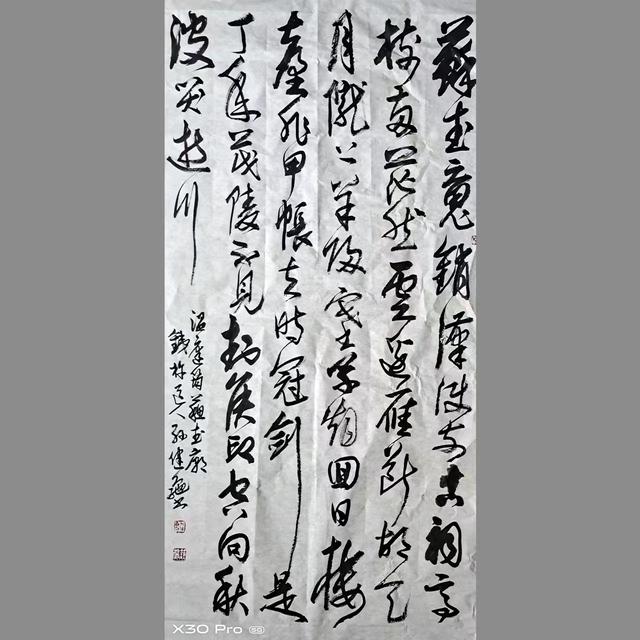 蘇武魂銷漢使前古祠高
樹兩茫然雲邊雁斷胡天
月隴上羊歸塞草烟回日樓
臺非甲帳去時冠劍是
丁年茂陵不見封侯印空向秋
波哭逝川
温庭筠蘇武廟
道人孫健書
X30 Pro 5G